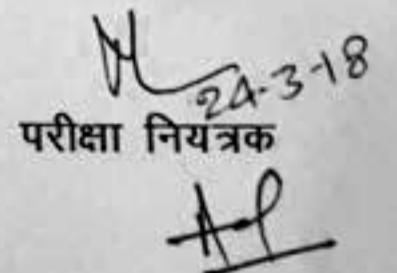 24-3-18
परीक्षा नियत्रक